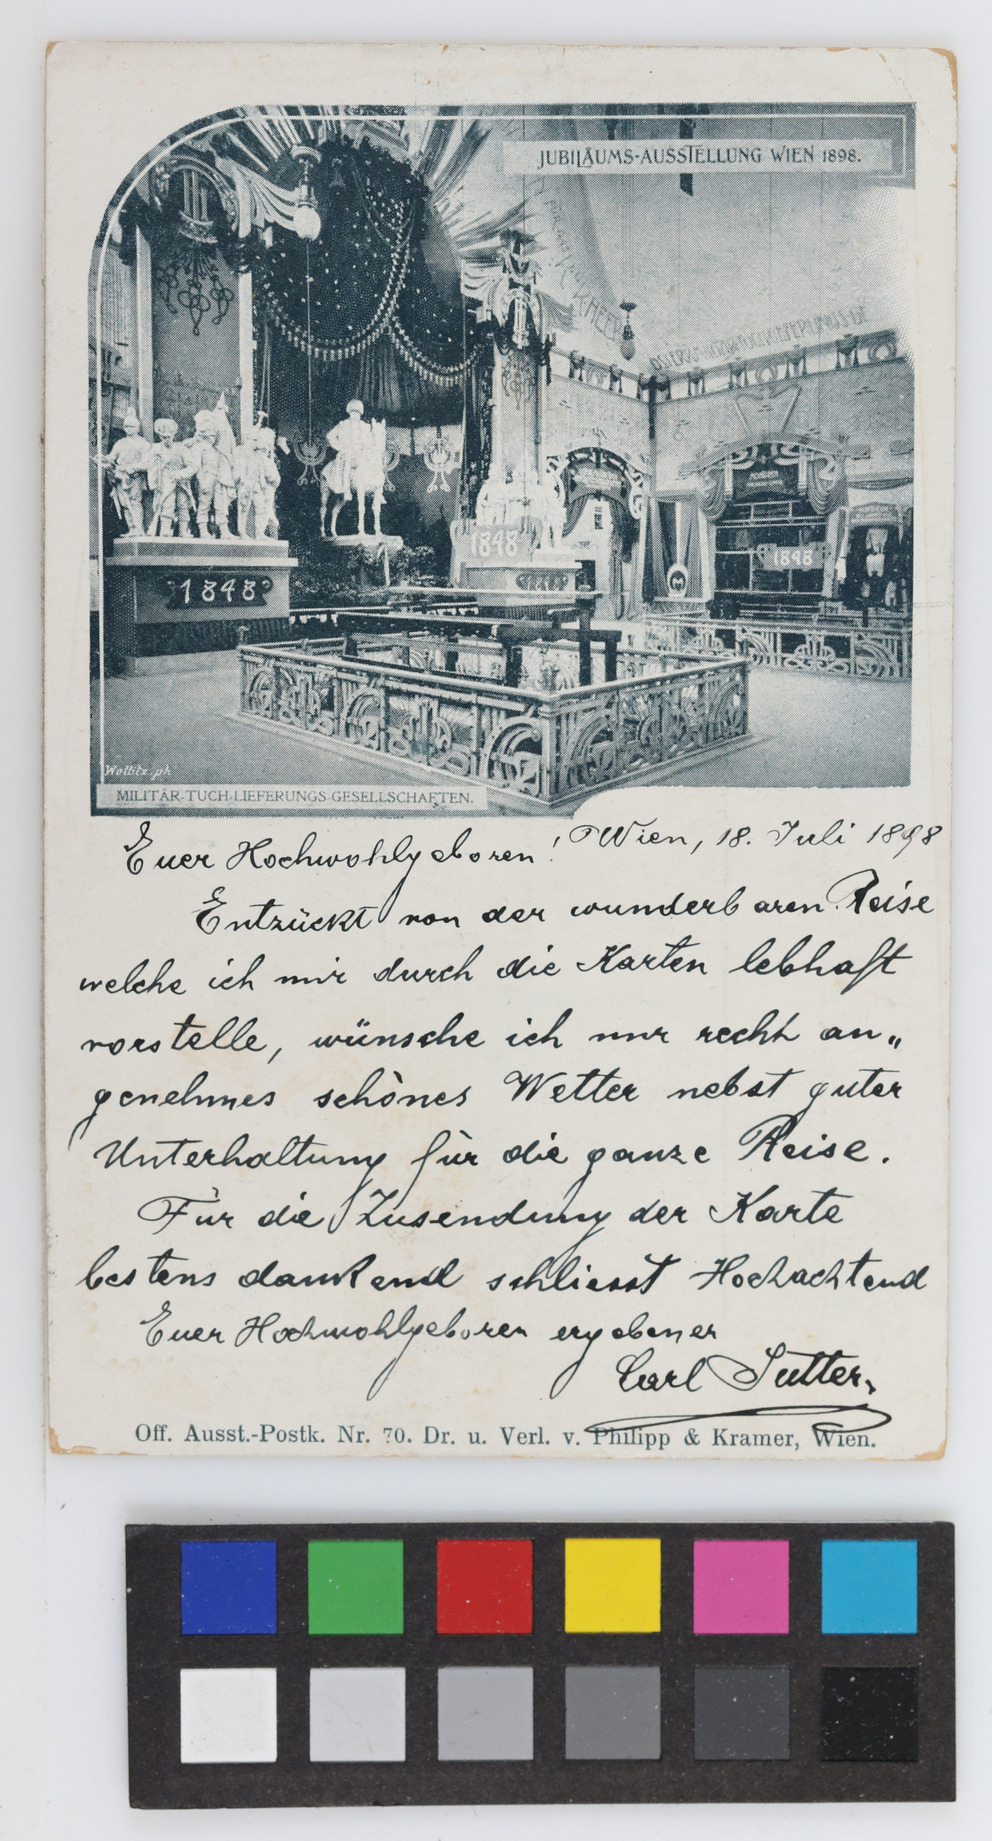 JUBILÄUMS-AUSSTELLUNG WIEN 1898.
1848
1848
1848
M
Wolbitz.ph
MILITÄR-TUCH-LIEFERUNGS-GESELLSCHAFTEN.
Wien, 18. Juli 1898
Euer Hochwohlgeboren!
Entzückt von der wunderbaren Reise
welche ich mir durch die Karten lebhaft
vorstelle, wünsche ich nur recht an„
genehmes schönes Wetter nebst guter
Unterhaltung für die ganze Reise.
Für die Zusendung der Karte
bestens dankend schliesst Hochachtend
Euer Hochwohlgeboren ergebener
Carl Sutter.
Off. Ausst.-Postk. Nr. 70. Dr. u. Verl. v. Philipp & Kramer, Wien.